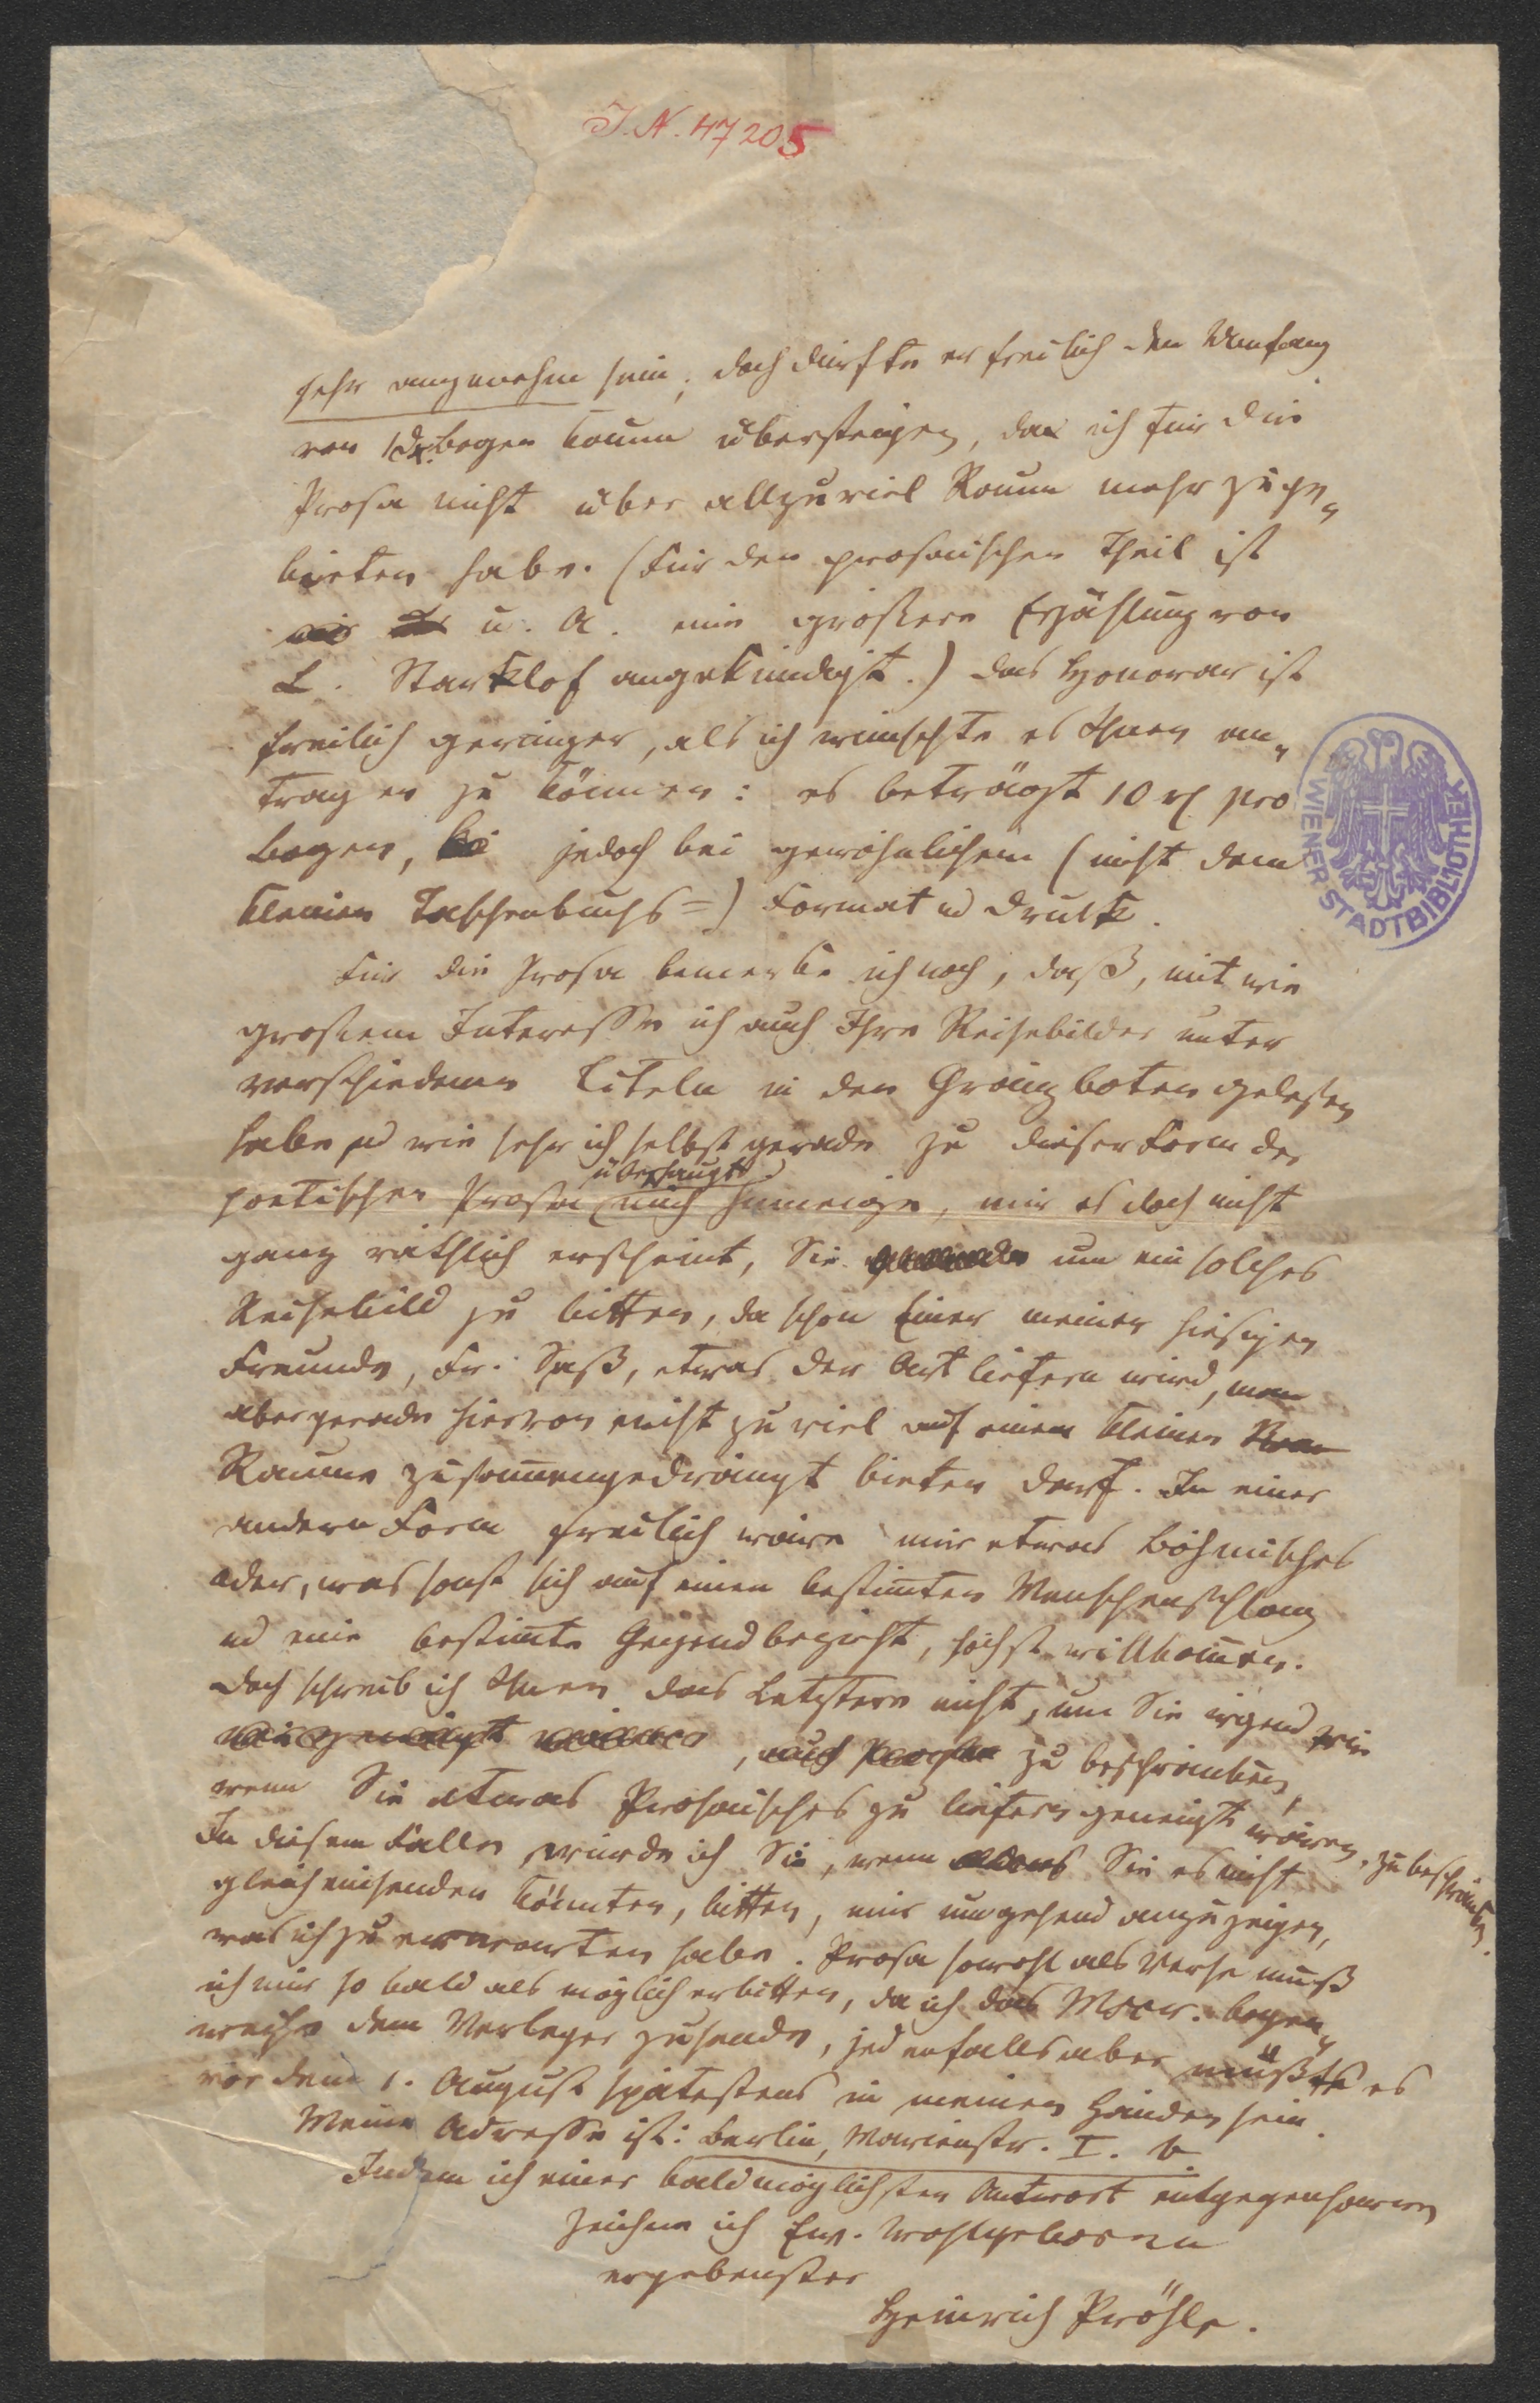 J. N. 47205
sehr angenehm sein; doch dürfte er freilich den Umfang
von 1 Dr.bogen kaum übersteigen, da ich für die
Prosa nicht über allzuviel Raum mehr zu ge„
bieten habe. (Für den prosaischen Theil ist
u. A. eine größere Erzählung von
L. Starklof angekündigt.) Das Honorar ist
freilich geringer, als ich wünschte es Ihnen an„
tragen zu können: es beträgt 10 rl. pro
Bogen, jedoch bei gewöhnlichem (nicht dem
kleinen Taschenbuchs=) Format ud Druck.
Für die Prosa bemerke ich noch, daß, mit wie
großem Interesse ich auch Ihre Reisebilder unter
verschiedenen Titeln in den Gränzboten gelesen
habe ud wie sehr ich selbst gerade zu dieser Form der
überhaupt
poetischen Prosa mich hinneige, mir es doch nicht
ganz räthlich erscheint, Sie um ein solches
Reisebild zu bitten, da schon Einer meiner hiesigen
Freunde, Fr. Saß, etwas der Art liefern wird, man
aber gerade hiervon nicht zu viel auf einem kleinen
Raume zusam̅engedrängt bieten darf. In einer
andern Form freilich wäre mir etwas Böhmisches
oder, was sonst sich auf einen bestim̅ten Menschenschlag
ud eine bestim̅te Gegend bezieht, höchst willkom̅en.
Doch schreib ich Ihnen das Letztere nicht, um Sie irgend wie
zu beschränken,
wenn Sie etwas Prosaisches zu liefern geneigt wären, zu beschränken.
In diesem Falle würde ich Sie, wenn Sie es nicht
gleich einsenden könnten, bitten, mir umgehend anzuzeigen,
was ich zu erwarten habe. Prosa sowohl als Verse muß
ich mir so bald als möglich erbitten, da ich das Mscr. bogen„
weise dem Verleger zusende, jedenfalls aber müßte es
vor dem 1. August spätestens in meinen Händen sein.
Meine Adresse ist: Berlin, Marienstr. I. b.
Indem ich einer baldmöglichsten Antwort entgegenharre
zeichne ich Ew. Wohlgeboren
ergebenster
Heinrich Pröhle.
WIENER STADTBIBLIOTHEK